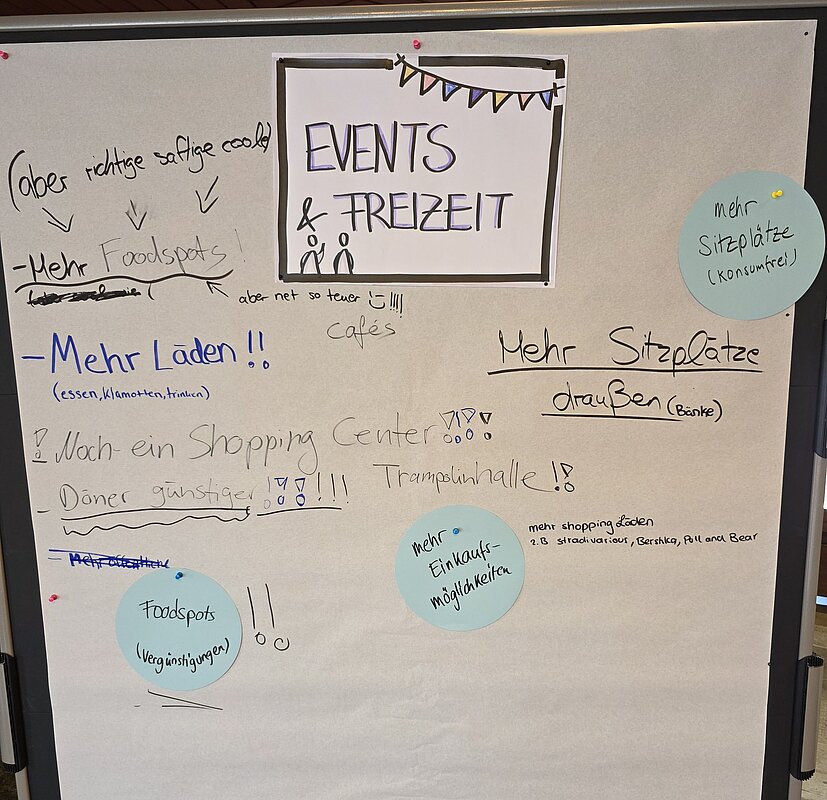 EVENTS
& FREIZEIT
(aber richtige saftige coole)
- Mehr Foodspots!
aber net so teuer !!!!
cafés
- Mehr Läden !!
(essen, klamotten, trinken)
! Noch ein Shopping Center !!!!
- Döner günstiger !!!!!!
Trampolinhalle !!
- Mehr öffentliche
Foodspots
(Vergünstigungen)
!!
mehr
Sitzplätze
(konsumfrei)
Mehr Sitzplätze
draußen (Bänke)
mehr
Einkaufs-
möglichkeiten
mehr shopping Läden
z.B stradivarious, Bershka, Pull and Bear